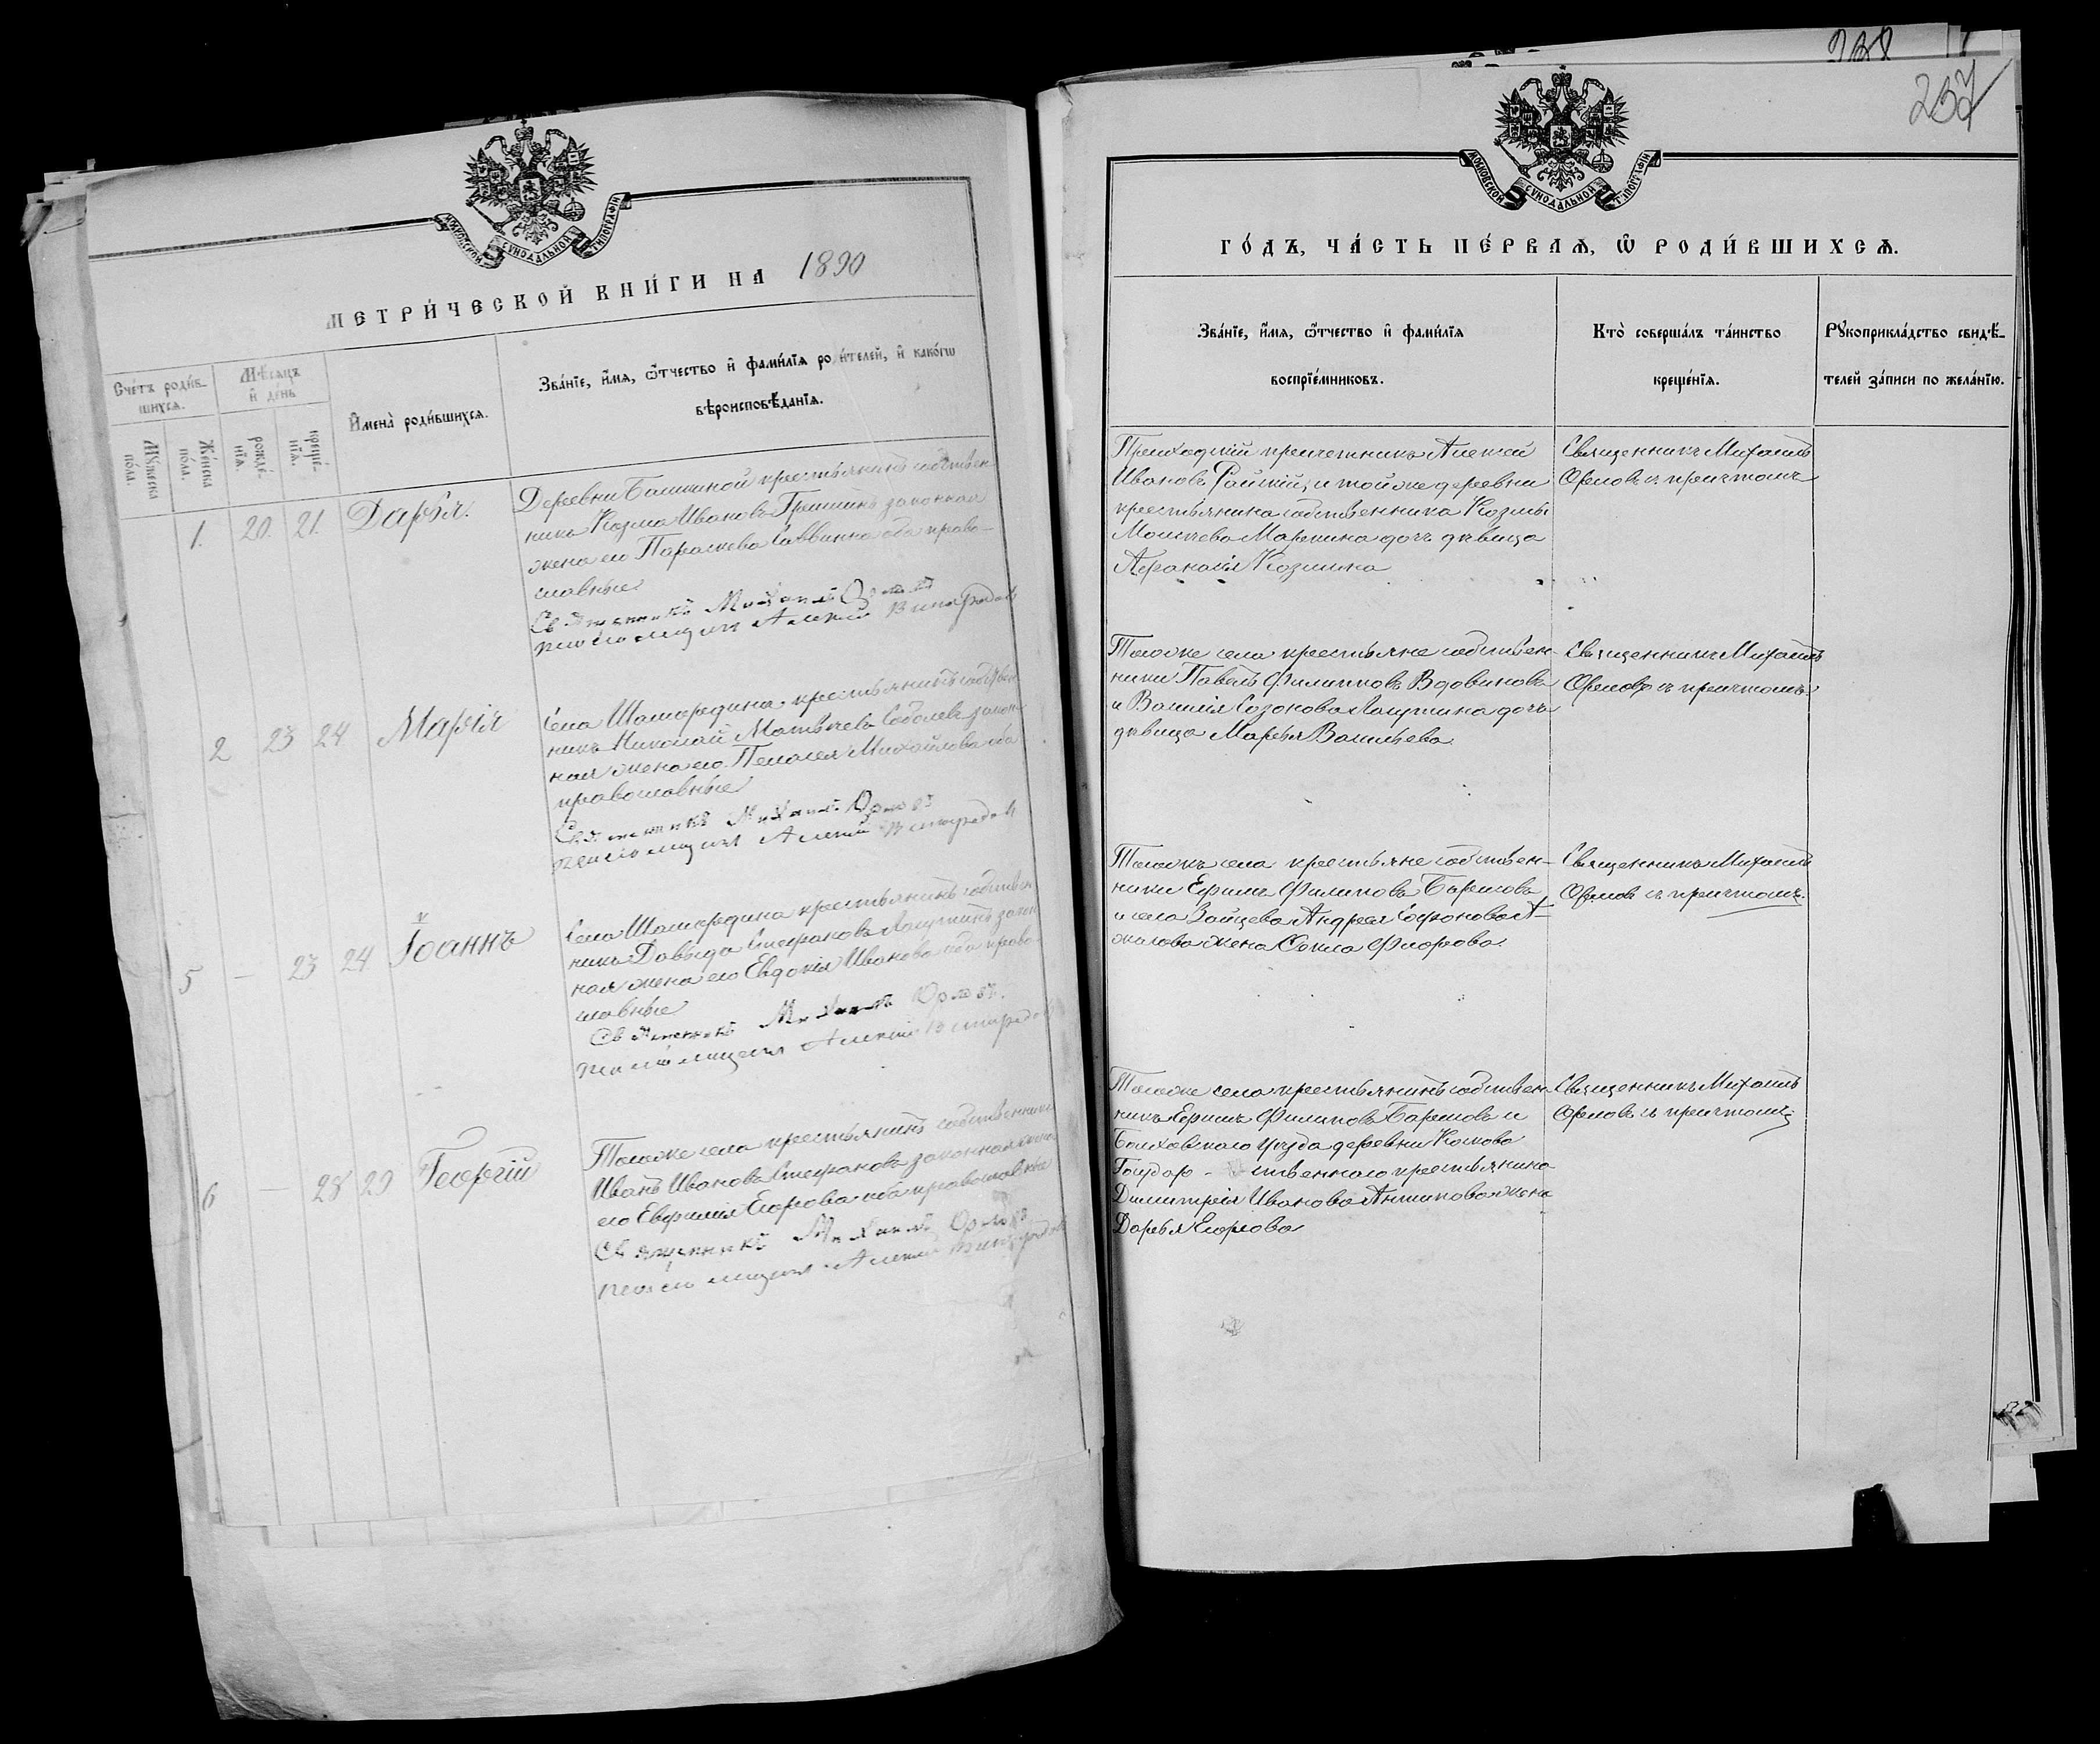 МОСКОВСКОЙ СѴНОДАЛЬНОЙ ТИПОГРАФІИ
МЕТРИ́ЧЕСКОЙ КНИ́ГИ НА 1890
Сче́тъ роди́в-
шихсѧ.
Мѣ́сѧцъ
и҆ де́нь
И҆мена̀ роди́вшихсѧ.
Зва́нїе, и҆́мѧ, ѻ҆́тчество и҆ фами́лїѧ роди́телей, и҆ како́гѡ
вѣроисповѣ́данїѧ.
Мꙋ́жеска
по́ла.
Же́нска
по́ла.
рожде́-
нїѧ.
креще́-
нїѧ.
1. 20. 21. Дарья.
Деревни Башкиной крестьянинъ собствен-
никъ Козма Ивановъ Гришинъ законная
жена его Параскева Саввина оба право-
славные
Священникъ Михаилъ Орловъ
псаломщикъ Алексий Виноградовъ
2 23 24 Марія
Села Шамордина крестьянинъ собствен
никъ Николай Матвѣевъ Соболевъ закон-
ная жена его Пелагея Михайлова оба
православные
Священникъ Михаилъ Орловъ
псаломщикъ Алексий Виноградовъ
5 — 23 24 Іоаннъ
Села Шамордина крестьянинъ собствен
никъ Давыдъ Стефановъ Лапушинъ закон
ная жена его Евдокія Иванова оба право-
славные
Священникъ Михаилъ Орловъ.
псаломщикъ Алексий Виноградовъ
6 — 28 29 Георгій
Тогоже села крестьянинъ собственникъ
Иванъ Ивановъ Стефановъ законная жена
его Евфимія Егорова оба православные
Священникъ Михаилъ Орловъ
псаломщикъ Алексий Виноградовъ
238
237
МОСКОВСКОЙ СѴНОДАЛЬНОЙ ТИПОГРАФІИ
ГО́ДЪ, ЧА́СТЬ ПЕ́РВАѦ, Ѽ РОДИ́ВШИХСѦ.
Зва́нїе, и҆́мѧ, ѻ҆́тчество и҆ фами́лїѧ
воспрїе́мниковъ.
Кто̀ соверша́лъ та́инство
креще́нїѧ.
Рꙋкоприкла́дство свидѣ́-
телей за́писи по жела́нїю.
Приходскій причетникъ Алексей
Ивановъ Райскій, и тойже деревни
крестьянина собственника Козмы
Моисеева Маркина дочь дѣвица
Афанасія Козмина
Священникъ Михаилъ
Орловъ съ причтомъ
Тогоже села крестьяне собствен-
ники Павелъ Филипповъ Вдовинъ
и Василія Созонова Лапушина дочь
дѣвица Марья Васильева
Священникъ Михаилъ
Орловъ съ причтомъ.
Тогожъ села крестьяне собствен-
ники Ефимъ Филиповъ Барсковъ
и села Зайцева Андрея Софонова А-
жена Ѳекла Флорова
Священникъ Михаилъ
Орловъ съ причтомъ.
Тогоже села крестьянинъ собствен-
никъ Ефимъ Филиповъ Барсковъ и
Болховскаго уѣзда деревни
Государ- ственнаго крестьянина
Димитрія Иванова Антипова жена
Дарья Егорова
Священникъ Михаилъ
Орловъ съ причтомъ